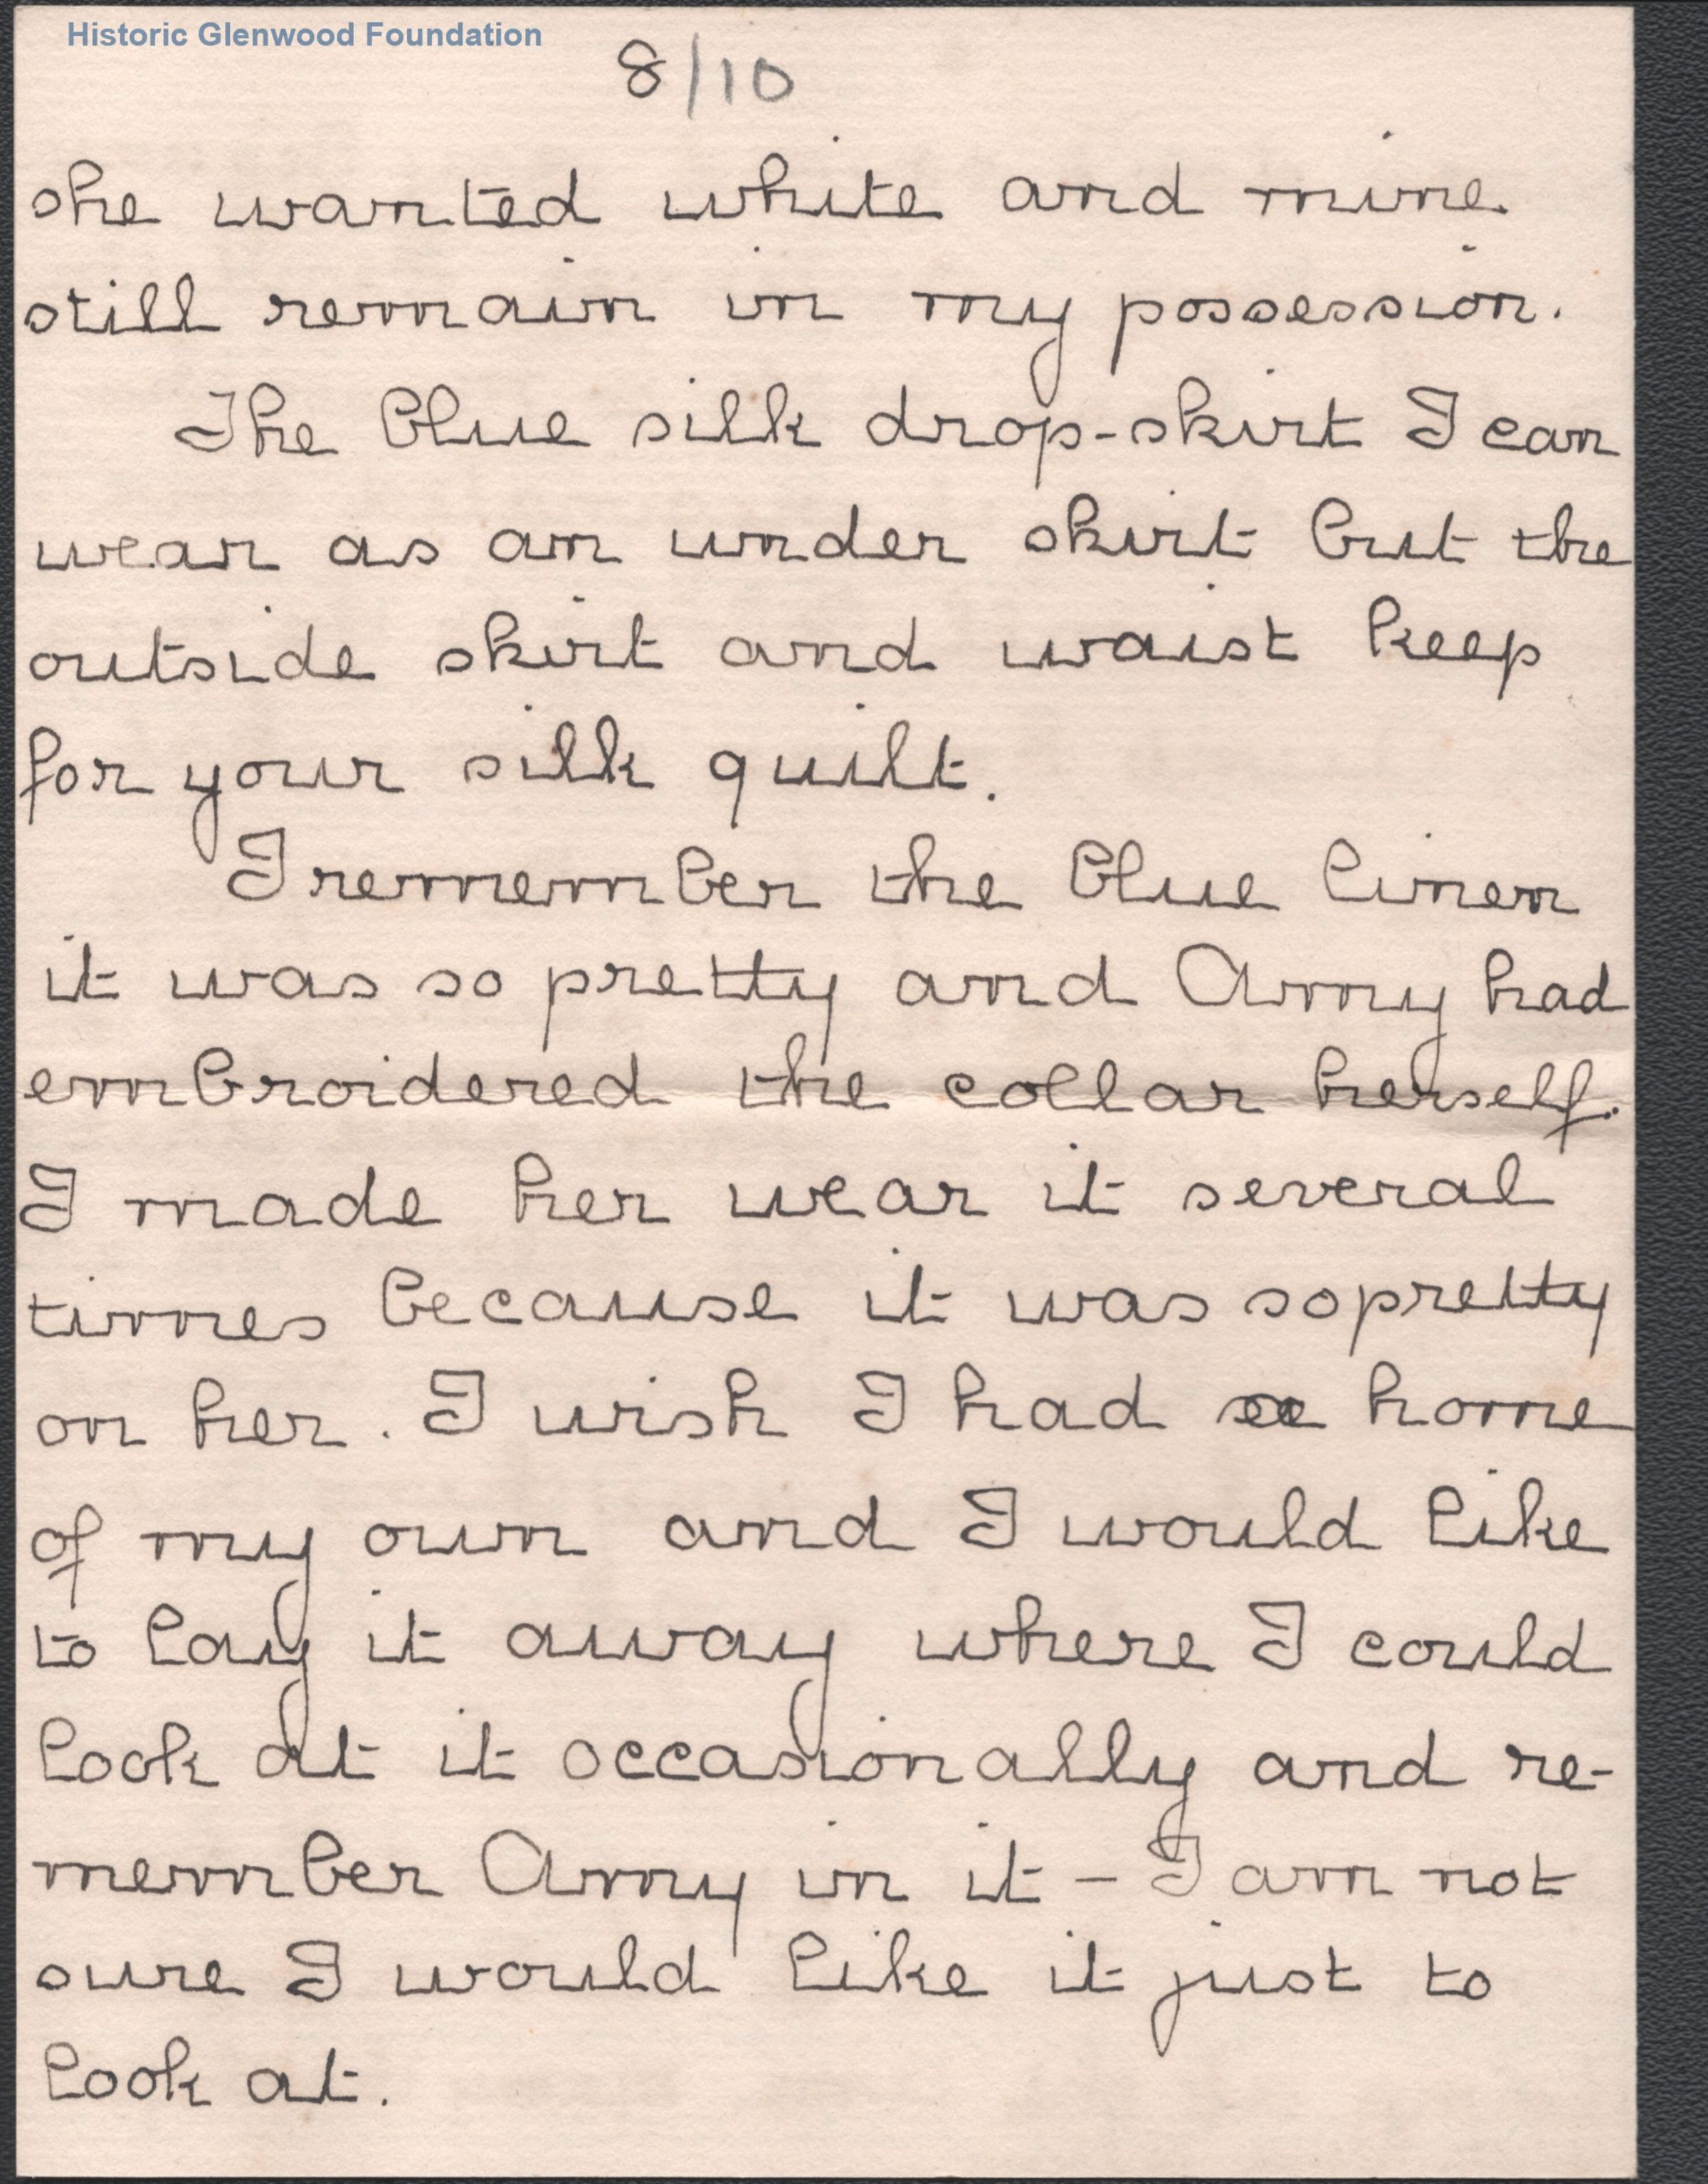 Historic Glenwood Foundation
8/10
she wanted white and mine
still remain in my possession.
The blue silk drop-skirt I can
wear as an under skirt but the
outside skirt and waist keep
for your silk quilt.
I remember the blue linen
it was so pretty and Amy had
embroidered the collar herself.
I made her wear it several
times because it was so pretty
on her. I wish I had a home
of my own and I would like
to lay it away where I could
look at it occasionally and re-
member Amy in it - I am not
sure I would like it just to
look at.